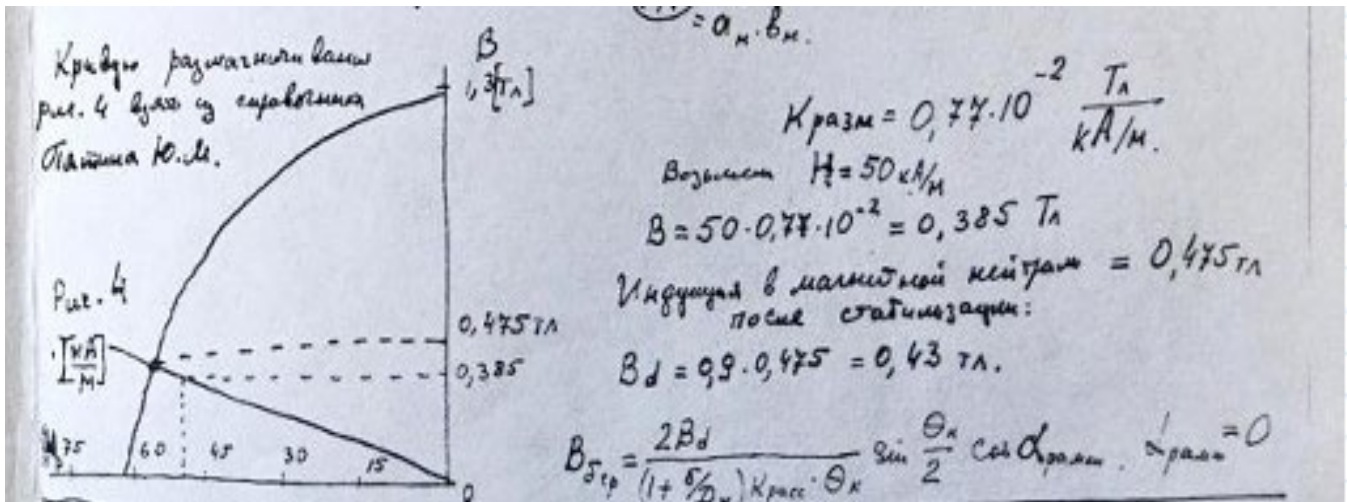 = a_м · b_м.
Кривую размагничивания
рис. 4 взял из справочника
Пятина Ю.М.
B
1,3[Тл]
Рис. 4
[кА/м]
0,475 тл
0,385
H 75 60 45 30 15 0
K разм = 0,77·10⁻² Тл / кА/м.
Возьмем H = 50 кА/м
B = 50·0,77·10⁻² = 0,385 Тл
Индукция в магнитной нейтрали = 0,475 тл
после стабилизации:
Bd = 0,9·0,475 = 0,43 тл.
B_δср = 2Bd / (1 + δ/D_н) K расс · Θ_к sin Θ_к/2 cos α рамки. α рамки = 0